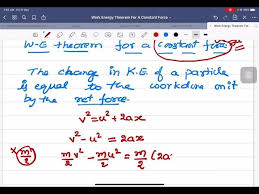 Work Energy Theorem For A Constant Force
W-E theorem for a constant force
The change in K.E of a particle
is equal to the workdone on it
by the net force.
v² = u² + 2ax
v² - u² = 2ax
× m/2 m/2 v² - m/2 u² = m/2 (2a